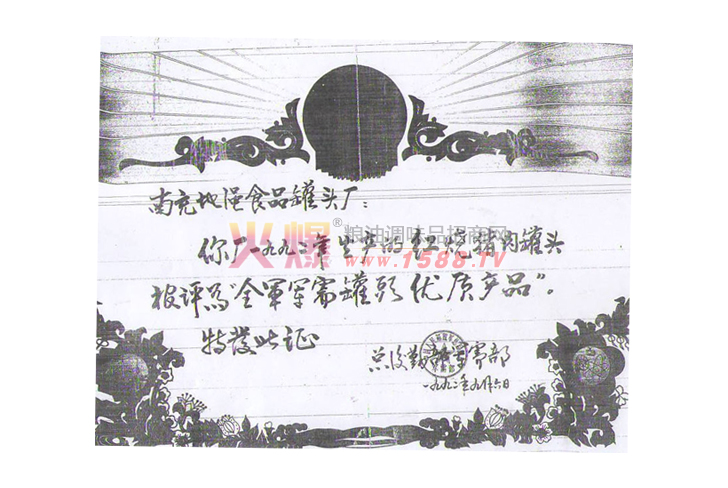 南充地区食品罐头厂：
你厂一九九二年生产的红烧猪肉罐头
被评为"全军军需罐头优质产品"。
特发此证
总后勤部军需部
一九九二年九月六日
火爆®粮油调味品招商网
www.1588.tv